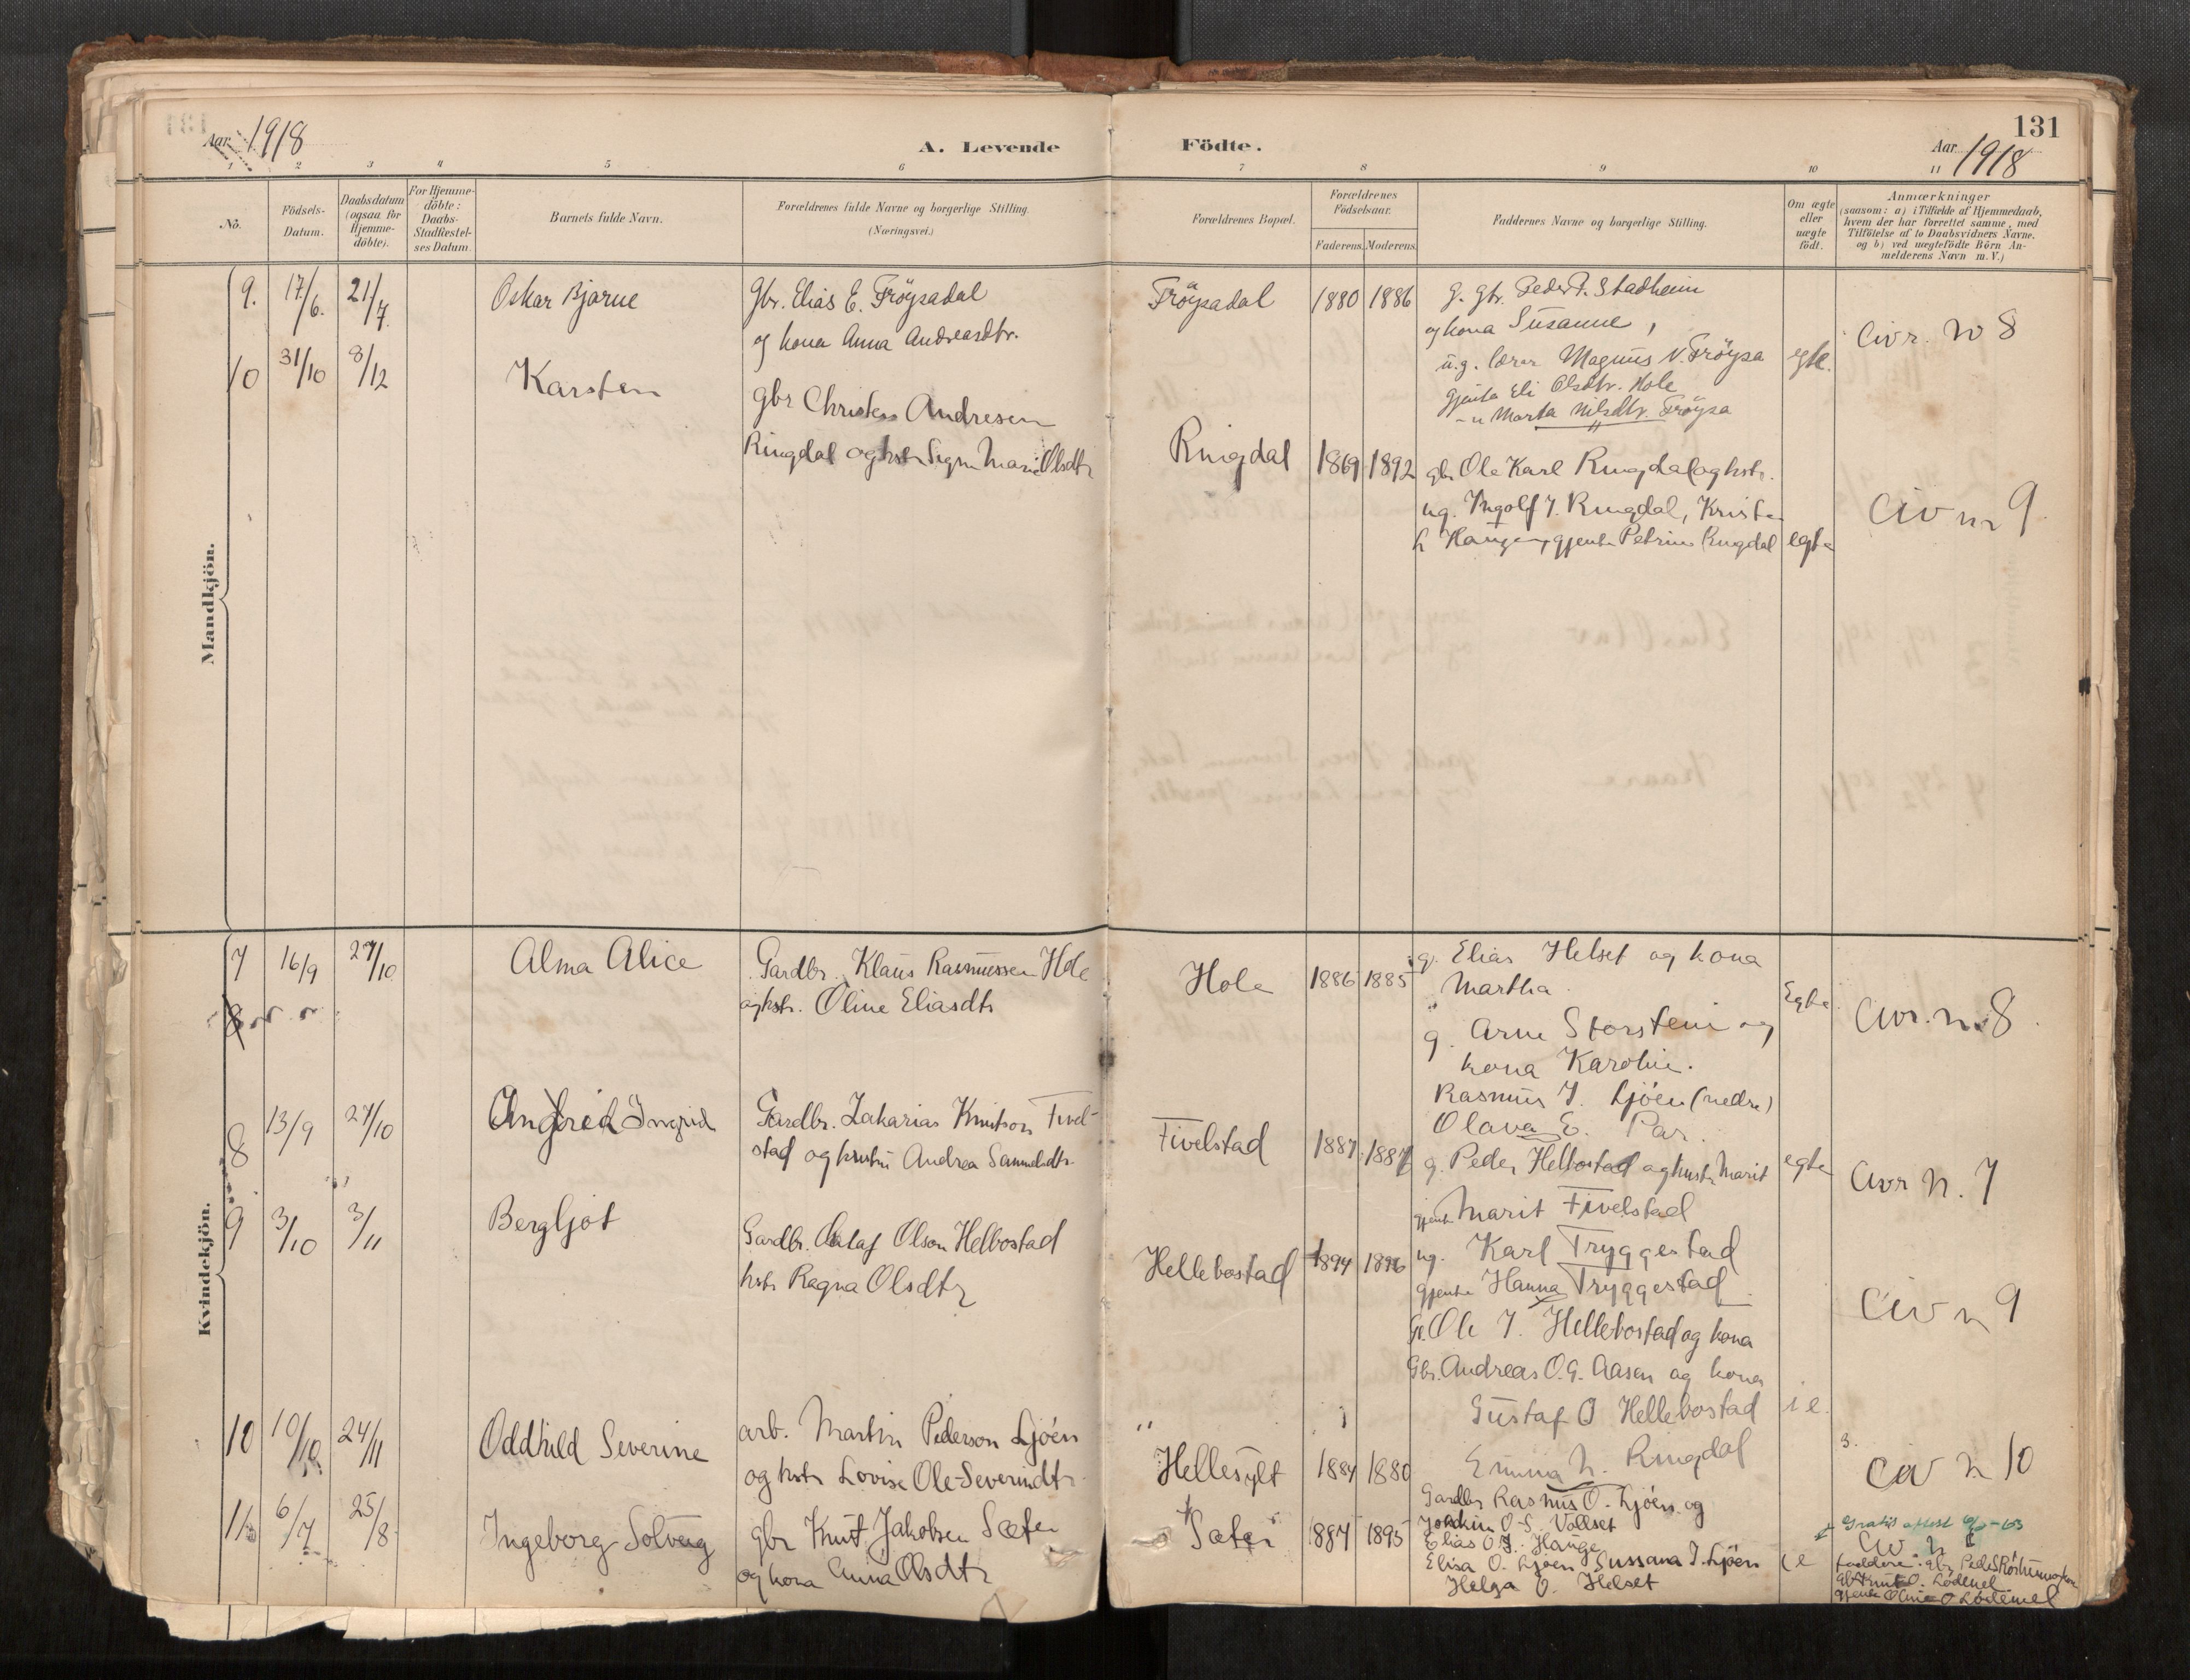 131
Aar 1918
A. Levende Födte.
Aar 1918
1 2 3 4 5 6 7 8 9 10 11
No.
Födsels-
Datum.
Daabsdatum
(ogsaa for
Hjemme-
döbte).
For Hjemme-
döbte:
Daabs-
Stadfæstel-
ses Datum.
Barnets fulde Navn.
Forældrenes fulde Navne og borgerlige Stilling.
(Næringsvei.)
Forældrenes Bopæl.
Forældrenes
Födselsaar.
Faderens. Moderens.
Faddernes Navne og borgerlige Stilling.
Om ægte
eller
uægte
födt.
Anmærkninger
(saasom: a) i Tilfælde af Hjemmedaab,
hvem der har forrettet samme, med
Tilföielse af to Daabsvidners Navne.
og b) ved uægtefödte Börn An-
melderens Navn m. V.)
Mandkjön.
9. 17/6. 21/7. Oskar Bjarne
Gbr. Elias E. Fröysadal
og kona Anna Andreasdtr.
Fröysadal 1880 1886
G. gbr. Peder P. Stadheim
og kona Susanne,
u.g. lærar Magnus N. Fröysa
gjenta Eli Olsdtr. Hole
-"- Marta Nilsdtr. Fröysa
egte.
Civr. No 8
10 31/10 8/12 Karsten
gbr Christen Andresen
Ringdal og hstr Sign Marie Olsdtr
Ringdal 1869 1892
gbr Ole Karl Ringdal og hstr.
ug. Ingolf I. Ringdal, Kristen
L Haugen, gjenta Petrine Ringdal
egte
Civ nr 9
Kvindekjön.
7 16/9 27/10 Alma Alice
Gardbr. Klaus Rasmussen Hole
og hstr. Oline Eliasdtr
Hole 1886 1885
g. Elias Helset og kona
Martha.
g. Arne Storstein og
kona Karoline.
Rasmus I. Ljöen (nedre)
Olava E. Par.
Egte
Civr. nr. 8.
8
8 13/9 27/10 Ingrid
Gardbr. Zakarias Knutson Fivel-
stad og hustru Andrea Samueldtr.
Fivelstad 1887 1887
g. Peder Hellbostad og hustr Marit
gjenta Marit Fivelstad
ug. Karl Tryggestad
gjenta Hanna Tryggestad
egte
Civr N. 7
9 3/10 3/11 Bergljot
Gardbr. Olaf Olson Helbostad
hstr Ragna Olsdtr
Hellebostad 1894 1896
G. Ole I. Hellebostad og kona
Gbr. Andreas O.G. Aasen og kona
Gustaf O Hellebostad
Emma N. Ringdal
i e.
Civ n 9
10 10/10 24/11 Oddhild Severine
arb. Martin Pederson Ljöen
og hstr Lovise Ole-Severindtr.
Hellesylt 1884 1880
Gardbr Rasmus O. Ljöen og
Joakim O-S. Vollset
Elias O.J. Hauge
Elisa O. Ljöen, Sussana I. Ljöen
Helga O. Helset
i e
Civ n 10
11 6/7 25/8 Ingeborg Solveig
gbr Knut Jakobsen Sæter
og kona Anna Olsdtr
Sæter 1887 1895
Gratis attest
Civ n
faddere: gbr Peder
gbr Knut O. Lödemel
gjenta Oline O Lödemel